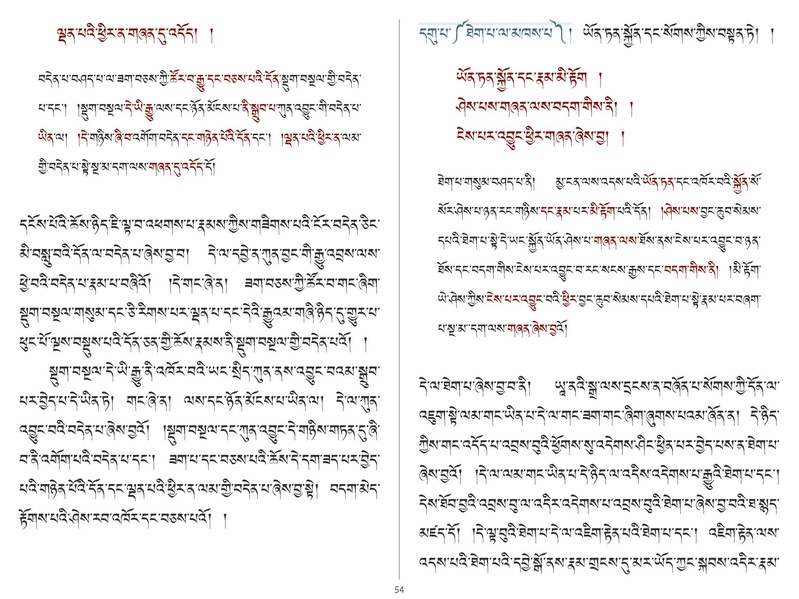 ལྡན་པའི་ཕྱིར་ན་གཞན་དུ་འདོད། །
བདེན་པ་བཤད་པ་ལ་ཟག་བཅས་ཀྱི་ཚོར་བ་རྒྱུ་དང་བཅས་པའི་དོན་སྡུག་བསྔལ་གྱི་བདེན་
པ་དང༌། །སྡུག་བསྔལ་དེ་ཡི་རྒྱུ་ལས་དང་ཉོན་མོངས་པ་ནི་སྒྲུབ་པ་ཀུན་འབྱུང་གི་བདེན་པ་
ཡིན་ལ། །དེ་གཉིས་ཞི་བ་འགོག་བདེན་དང་གཉེན་པོའི་དོན་དང༌། །ལྡན་པའི་ཕྱིར་ན་ལམ་
གྱི་བདེན་པ་སྟེ་སྔ་མ་དག་ལས་གཞན་དུ་འདོད་དོ།
དངོས་པོའི་ཆོས་ཉིད་ཇི་ལྟ་བ་འཕགས་པ་རྣམས་ཀྱིས་གཟིགས་པའི་ངོར་བདེན་ཅིང་
མི་བསླུ་བའི་དོན་ལ་བདེན་པ་ཞེས་བྱ་བ། དེ་ལ་དབྱེ་ན་ཀུན་བྱང་གི་རྒྱུ་འབྲས་ལས་
ཕྱེ་བའི་བདེན་པ་རྣམ་པ་བཞིའོ། །དེ་གང་ཞེ་ན། ཟག་བཅས་ཀྱི་ཚོར་བ་གང་ཞིག་
སྡུག་བསྔལ་གསུམ་དང་ཅི་རིགས་པར་ལྡན་པ་དང་དེའི་རྒྱུའམ་གཞི་ཉིད་དུ་གྱུར་པ་
ཕུང་པོ་ལྔས་བསྡུས་པའི་དོན་ཅན་གྱི་ཆོས་རྣམས་ནི་སྡུག་བསྔལ་གྱི་བདེན་པའོ། །
སྡུག་བསྔལ་དེ་ཡི་རྒྱུ་ནི་འཁོར་བའི་ཡང་སྲིད་ཀུན་ནས་འབྱུང་བའམ་སྒྲུབ་
པར་བྱེད་པ་དེ་ཡིན་ཏེ། གང་ཞེ་ན། ལས་དང་ཉོན་མོངས་པ་ཡིན་ལ། དེ་ལ་ཀུན་
འབྱུང་བའི་བདེན་པ་ཞེས་བྱའོ། །སྡུག་བསྔལ་དང་ཀུན་འབྱུང་དེ་གཉིས་གཏན་དུ་ཞི་
བ་ནི་འགོག་པའི་བདེན་པ་དང༌། ཟག་པ་དང་བཅས་པའི་ཆོས་དེ་དག་ཟད་པར་བྱེད་
པའི་གཉེན་པོའི་དོན་དང་ལྡན་པའི་ཕྱིར་ན་ལམ་གྱི་བདེན་པ་ཞེས་བྱ་སྟེ། བདག་མེད་
རྟོགས་པའི་ཤེས་རབ་འཁོར་དང་བཅས་པའོ། །
དགུ་པ་༼ཐེག་པ་ལ་མཁས་པ༽། ཡོན་ཏན་སྐྱོན་དང་སོགས་ཀྱིས་བསྟན་ཏེ། །
ཡོན་ཏན་སྐྱོན་དང་རྣམ་མི་རྟོག །
ཤེས་པས་གཞན་ལས་བདག་གིས་ནི། །
ངེས་པར་འབྱུང་ཕྱིར་གཞན་ཞེས་བྱ། །
ཐེག་པ་གསུམ་བཤད་པ་ནི། མྱ་ངན་ལས་འདས་པའི་ཡོན་ཏན་དང་འཁོར་བའི་སྐྱོན་སོ་
སོར་ཤེས་པ་ཉན་རང་གཉིས་དང་རྣམ་པར་མི་རྟོག་པའི་དོན། །ཤེས་པས་བྱང་ཆུབ་སེམས་
དཔའི་ཐེག་པ་སྟེ་དེ་ཡང་སྐྱོན་ཡོན་ཤེས་པ་གཞན་ལས་ཐོས་ནས་ངེས་པར་འབྱུང་བ་ཉན་
ཐོས་དང་བདག་གིས་ངེས་པར་འབྱུང་བ་རང་སངས་རྒྱས་དང་བདག་གིས་ནི། །མི་རྟོག་
ཡེ་ཤེས་ཀྱིས་ངེས་པར་འབྱུང་བའི་ཕྱིར་བྱང་ཆུབ་སེམས་དཔའི་ཐེག་པ་སྟེ་རྣམ་པར་བཞག་
པ་སྔ་མ་དག་ལས་གཞན་ཞེས་བྱའོ།
དེ་ལ་ཐེག་པ་ཞེས་བྱ་བ་ནི། ཡཱ་ནའི་སྒྲ་ལས་དྲངས་ན་བཞོན་པ་སོགས་ཀྱི་དོན་ལ་
འཇུག་སྟེ་ལམ་གང་ཡིན་པ་དེ་ལ་གང་ཟག་གང་ཞིག་ཞུགས་པའམ་ཞོན་ན། དེ་ཉིད་
ཀྱིས་གང་འདོད་པ་འབྲས་བུའི་ཕྱོགས་སུ་འདེགས་ཤིང་ཕྱིན་པར་བྱེད་པས་ན་ཐེག་པ་
ཞེས་བྱའོ། །དེ་ལ་ལམ་གང་ཡིན་པ་དེ་ཉིད་ལ་འདིས་འདེགས་པ་རྒྱུའི་ཐེག་པ་དང༌།
དེས་ཐོབ་བྱའི་འབྲས་བུ་ལ་འདིར་འདེགས་པ་འབྲས་བུའི་ཐེག་པ་ཞེས་བྱ་བའི་ཐ་སྙད་
མཛད་དོ། །དེ་ལྟ་བུའི་ཐེག་པ་དེ་ལ་འཇིག་རྟེན་པའི་ཐེག་པ་དང༌། འཇིག་རྟེན་ལས་
འདས་པའི་ཐེག་པའི་དབྱེ་སྒོ་ནས་རྣམ་གྲངས་དུ་མར་ཡོད་ཀྱང་སྐབས་འདིར་རྣམ་
54